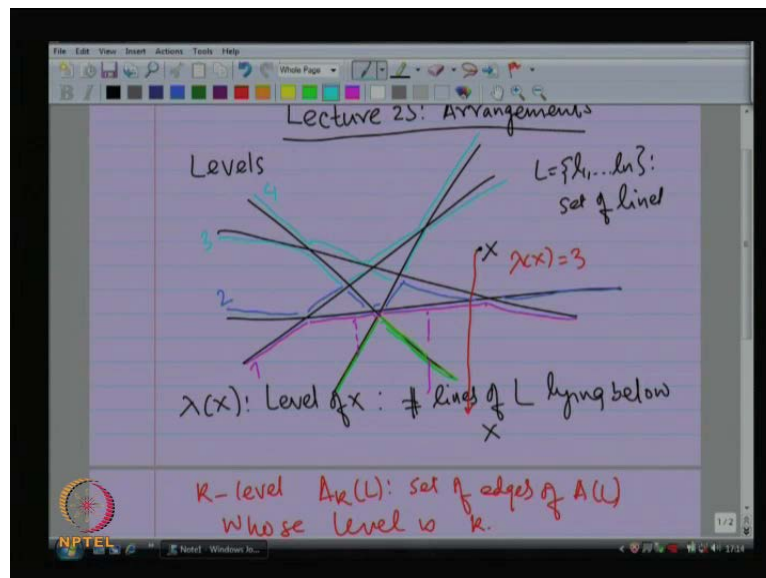 File Edit View Insert Actions Tools Help
Whole Page
B I
Lecture 25: Arrangements
Levels
L={l1,...ln}:
set of lines
4
3
X
λ(x)=3
2
1
λ(x): Level of x: # lines of L lying below
X
K-level AK(L): set of edges of A(L)
whose level is k.
1/2
NPTEL
Note1 - Windows Jo...
17:14